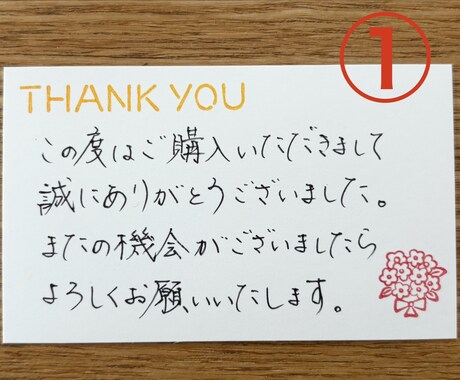 ①
THANK YOU
この度はご購入いただきまして
誠にありがとうございました。
またの機会がございましたら
よろしくお願いいたします。